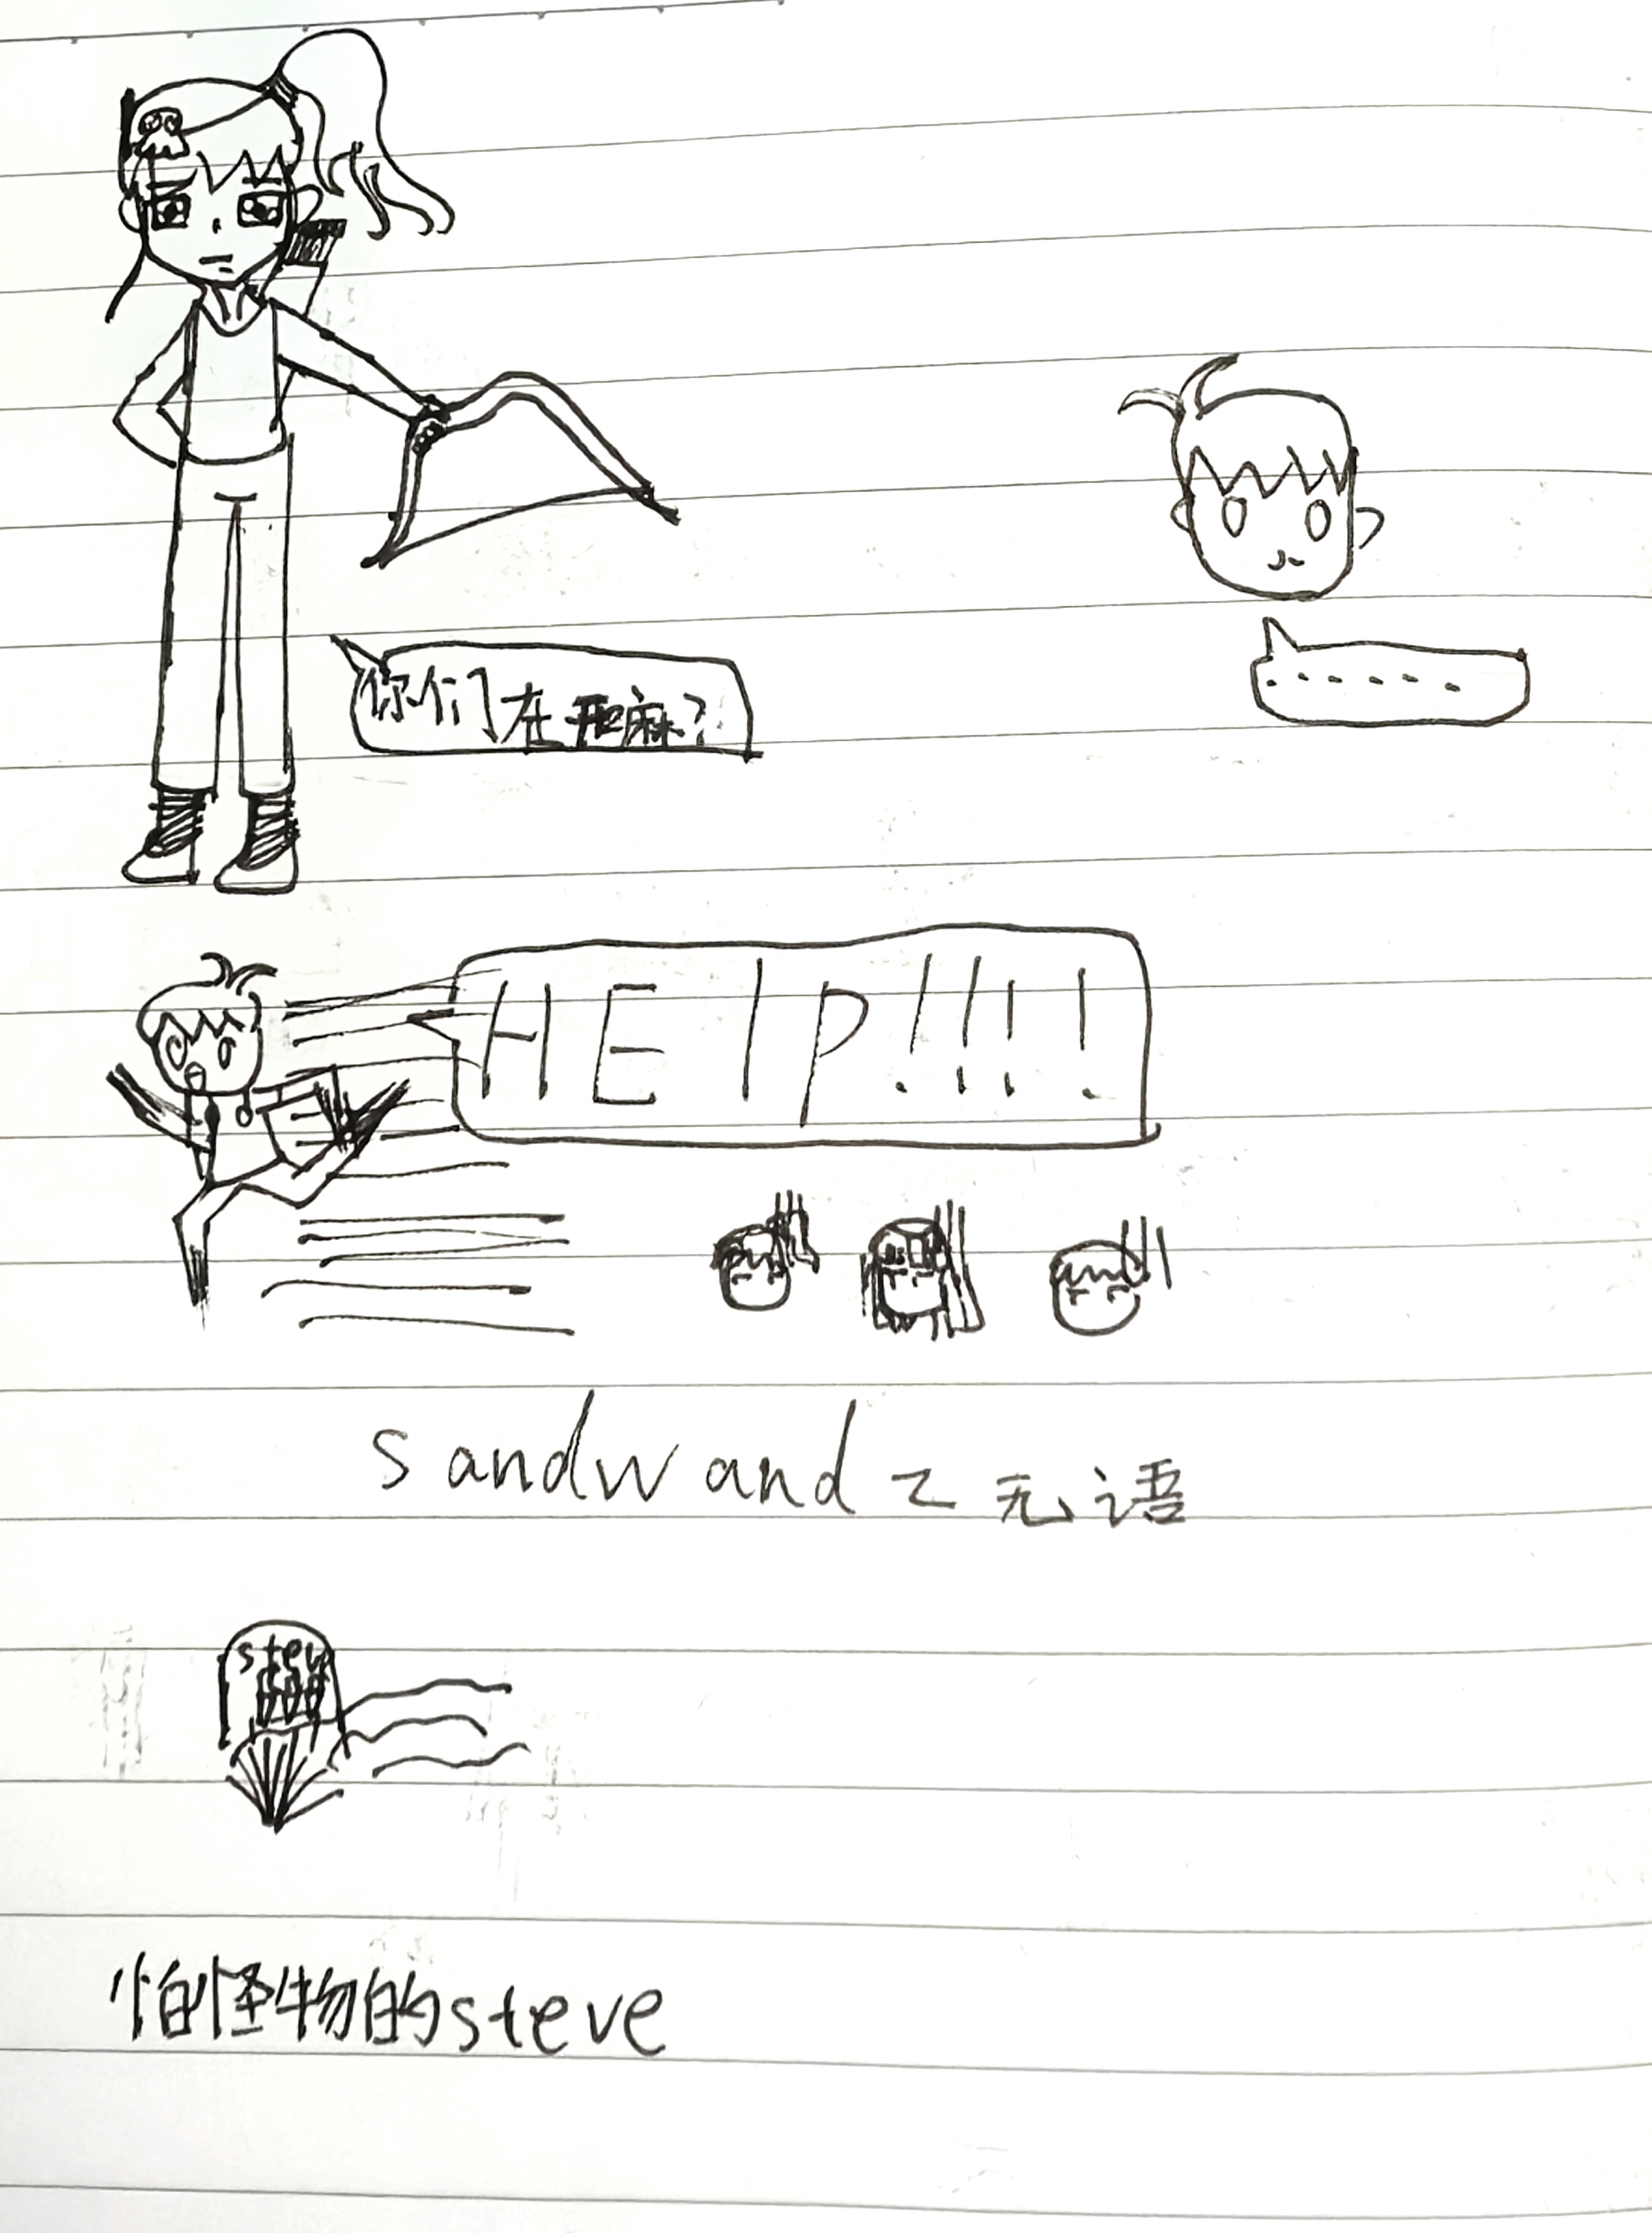 你们在干麻?
......
HElP!!!!
sandwandz无语
steve
怕怪物的steve